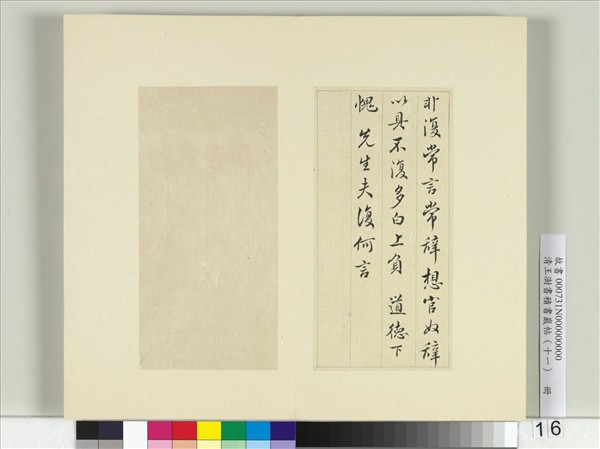 非復常言常辭想官奴辭
以具不復多白上負 道德下
愧 先生夫復何言
故書000731N000000000
清王澍書積書巖帖(十一) 冊
16